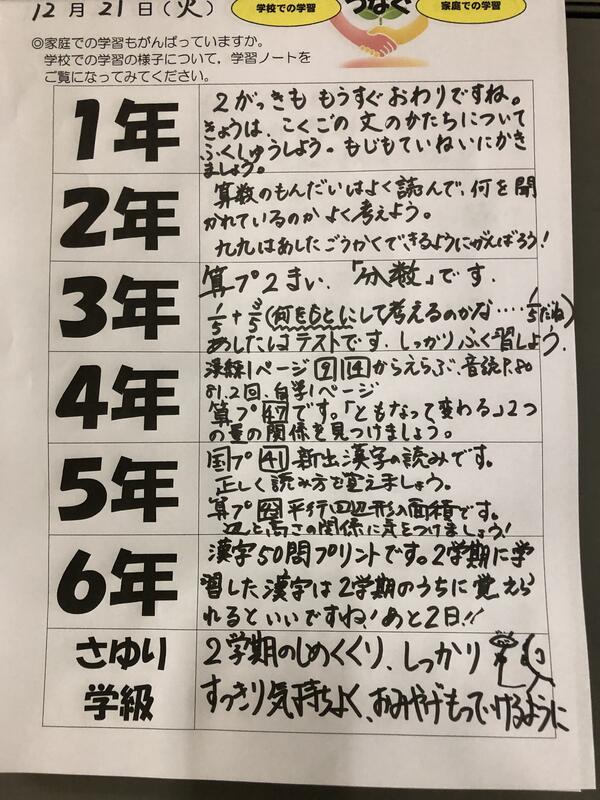 12月21日(火)
学校での学習
つなぐ
家庭での学習
◎家庭での学習もがんばっていますか。
学校での学習の様子について，学習ノートを
ご覧になってみてください。
1年
2がっきも もうすぐ おわりですね。
きょうは、こくごの 文のかたちについて
ふくしゅうしよう。もじもていねいにかき
ましょう。
2年
算数のもんだいはよく読んで、何を聞
かれているのか よく考えよう。
九九はあしたごうかくできるようにがんばろう!
3年
算プ2まい.「分数」です.
1/5+3/5(何をもとにして考えるのかな……1/5だね)
あしたはテストです.しっかりふく習しよう.
4年
漢練1ページ 2 14 からえらぶ、音読P.80
81.2回、自学1ページ
算プ47です。「ともなって変わる」2つ
の量の関係を見つけましょう。
5年
国プ41新出漢字の読みです。
正しく読み方を覚えましょう。
算プ 平行四辺形の面積です。
辺と高さの関係に気をつけましょう!
6年
漢字50問プリントです。2学期に学
習した漢字は2学期のうちに覚えら
れるといいですね!あと2日!!
さゆり
学級
2学期のしめくくり、しっかり
すっきり気持ちよく、おみやげもっていけるように